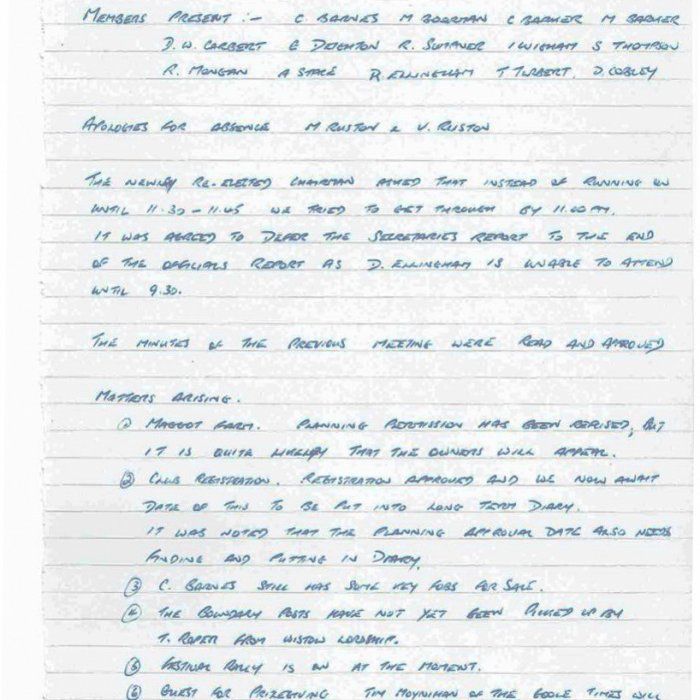 MEMBERS PRESENT :- C BARNES M BOORMAN C BARKER M BARKER
D.W. CARBERT E DEIGHTON R. SUMNER I WIGHAM S THOMPSON
R. MONGAN A STACE D ELLINGHAM T TURBERT. D. COBLEY
APOLOGIES FOR ABSENCE M RUSTON & V. RUSTON
THE NEWLY RE-ELECTED CHAIRMAN ASKED THAT INSTEAD OF RUNNING ON
UNTIL 11.30 - 11.45 WE TRIED TO GET THROUGH BY 11.00 PM.
IT WAS AGREED TO DEFER THE SECRETARIES REPORT TO THE END
OF THE OFFICIALS REPORT AS D. ELLINGHAM IS UNABLE TO ATTEND
UNTIL 9.30.
THE MINUTES OF THE PREVIOUS MEETING WERE READ AND APPROVED
MATTERS ARISING.
① MAGGOT FARM. PLANNING PERMISSION HAS BEEN REFUSED, BUT
IT IS QUITE LIKELY THAT THE OWNERS WILL APPEAL.
② CLUB REGISTRATION. REGISTRATION APPROVED AND WE NOW AWAIT
DATE OF THIS TO BE PUT INTO LONG TERM DIARY.
IT WAS NOTED THAT THE PLANNING APPROVAL DATE ALSO NEEDS
FINDING AND PUTTING IN DIARY.
③ C. BARNES STILL HAS SOME KEY FOBS FOR SALE.
④ THE BOUNDARY POSTS HAVE NOT YET BEEN PICKED UP BY
T. ROPER FROM WISTOW LORDSHIP.
⑤ FESTIVAL RALLY IS ON AT THE MOMENT.
⑥ GUEST FOR PRIZEGIVING TIM MOYNIHAN OF THE GOOLE TIMES WILL